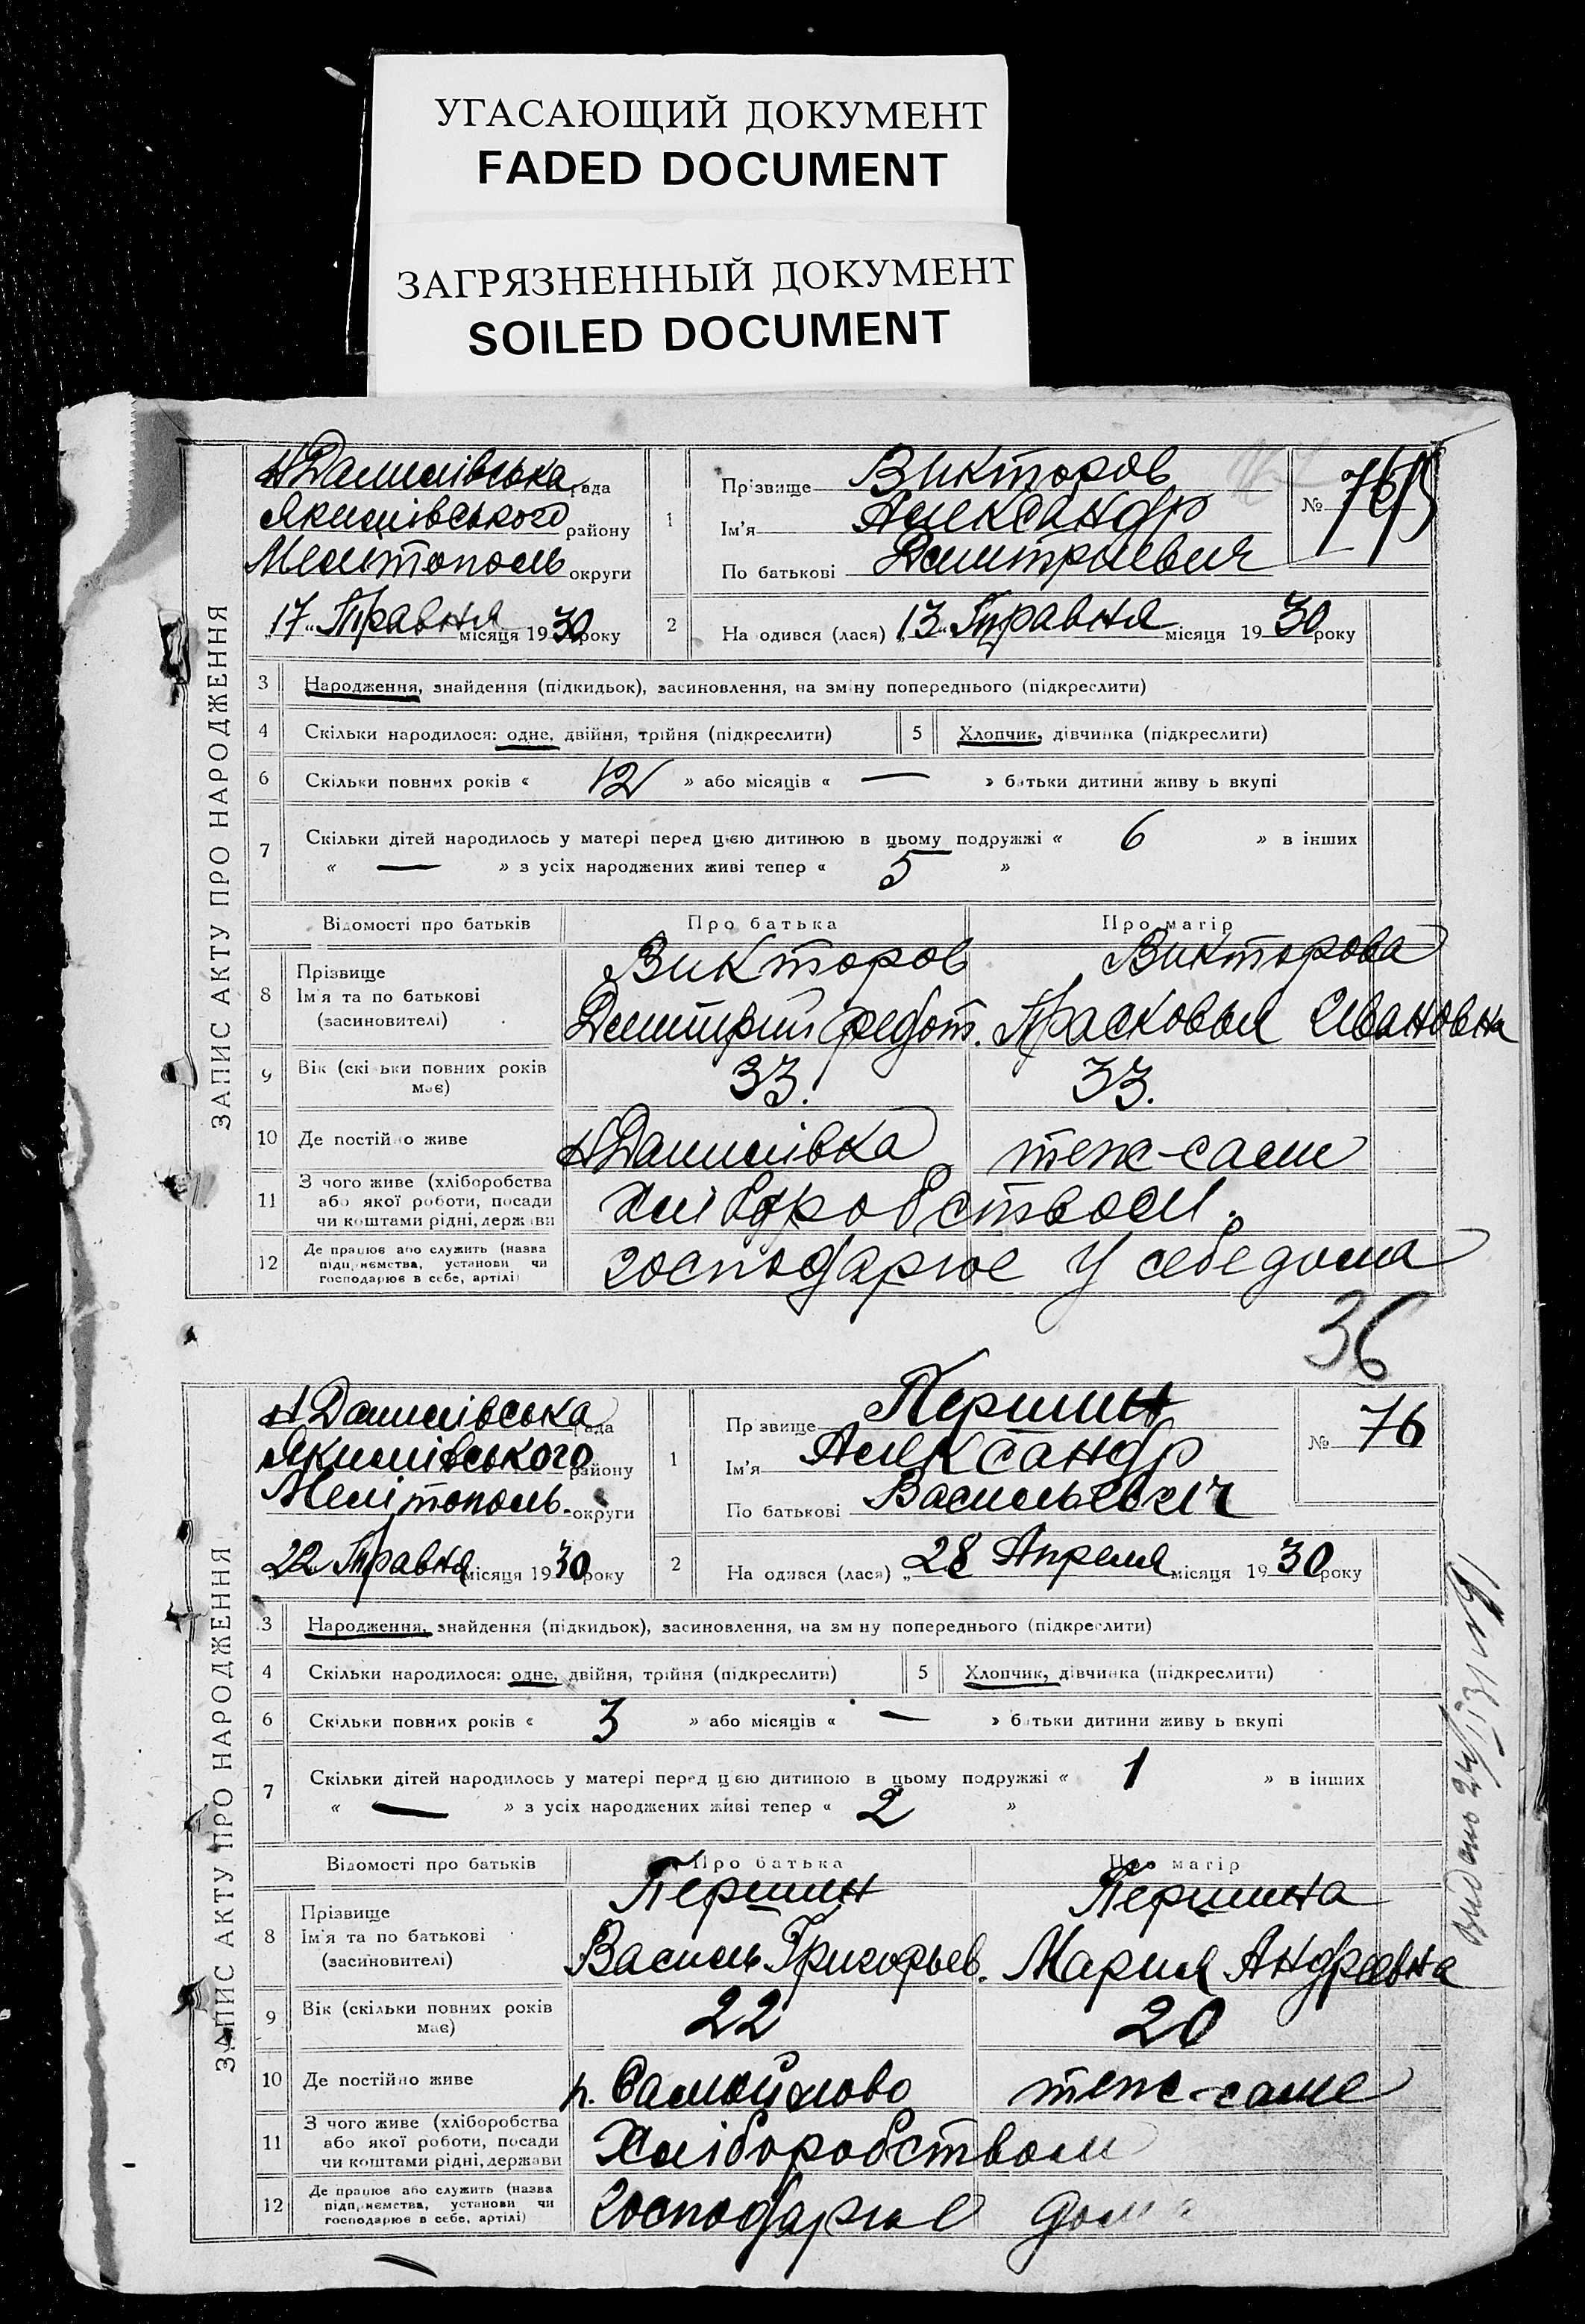 УГАСАЮЩИЙ ДОКУМЕНТ
FADED DOCUMENT
ЗАГРЯЗНЕННЫЙ ДОКУМЕНТ
SOILED DOCUMENT
ЗАПИС АКТУ ПРО НАРОДЖЕННЯ
Н Данилівська рада
Якимівського району
Мелітополь округи
„17“ Травня місяця 1930 року
1 Прізвище Викторов
Ім'я Александр
По батькові Дмитриевич
№ 75
2 Народився (лася) „13“ Травня місяця 1930 року
3 Народження, знайдення (підкидьок), засиновлення, на зміну попереднього (підкреслити)
4 Скільки народилося: одне, двійня, трійня (підкреслити) 5 Хлопчик, дівчинка (підкреслити)
6 Скільки повних років « 12 » або місяців « — » батьки дитини живуть вкупі
7 Скільки дітей народилось у матері перед цією дитиною в цьому подружжі « 6 » в інших
« — » з усіх народжених живі тепер « 5 »
Відомості про батьків Про батька Про матір
8 Прізвище Ім'я та по батькові (засиновителі) Викторов Викторова
Дмитрий Федот. Прасковья Ивановна
9 Вік (скільки повних років має) 33. 33.
10 Де постійно живе Н Данилівка теж-саме
11 З чого живе (хліборобства або якої роботи, посади чи коштами рідні, держави Хліборобством.
12 Де працює або служить (назва підприємства, установи чи господарює в себе, артілі) господарює у себе дома
36
ЗАПИС АКТУ ПРО НАРОДЖЕННЯ
Н Данилівська рада
Якимівського району
Мелітополь. округи
„22 Травня місяця 1930 року
1 Прізвище Першин
Ім'я Александр
По батькові Васильевич
№ 76
2 Народився (лася) „28 Апреля місяця 1930 року
3 Народження, знайдення (підкидьок), засиновлення, на зміну попереднього (підкреслити)
4 Скільки народилося: одне, двійня, трійня (підкреслити) 5 Хлопчик, дівчинка (підкреслити)
6 Скільки повних років « 3 » або місяців « — » батьки дитини живуть вкупі
7 Скільки дітей народилось у матері перед цією дитиною в цьому подружжі « 1 » в інших
« — » з усіх народжених живі тепер « 2 »
Відомості про батьків Про батька Про матір
8 Прізвище Ім'я та по батькові (засиновителі) Першин Першина
Василь Григорьев. Мария Андреевна
9 Вік (скільки повних років має) 22 20
10 Де постійно живе п. Самойлово теж-саме
11 З чого живе (хліборобства або якої роботи, посади чи коштами рідні, держави Хліборобством
12 Де працює або служить (назва підприємства, установи чи господарює в себе, артілі) господарює дома
Видано